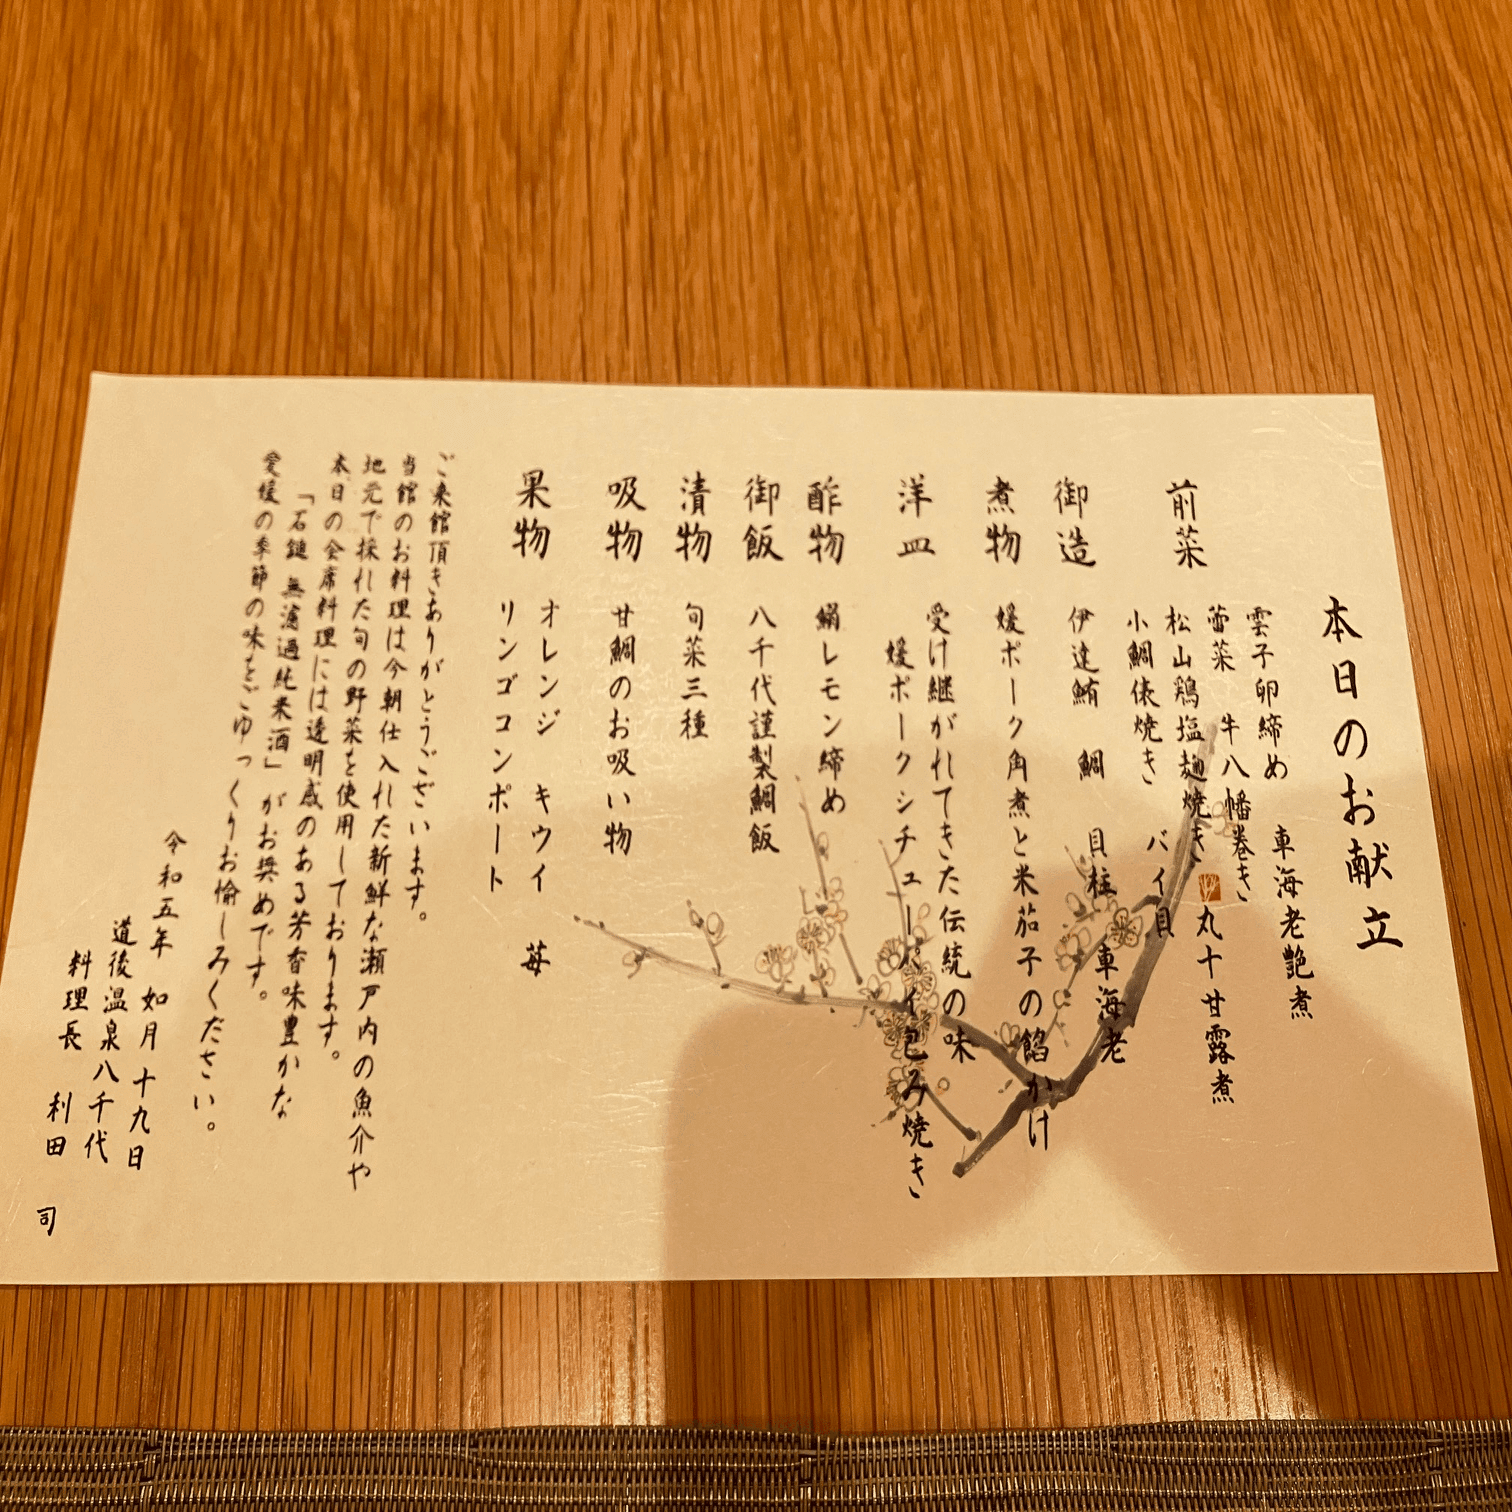 本日のお献立
前菜
雲子卵締め 車海老艶煮
蕾菜 牛八幡巻き
松山鶏塩麹焼き 丸十甘露煮
小鯛俵焼き バイ貝
御造
伊達鮪 鯛 貝柱 車海老
煮物
媛ポーク角煮と米茄子の餡かけ
洋皿
受け継がれてきた伝統の味
媛ポークシチューパイ包み焼き
酢物
鯛レモン締め
御飯
八千代謹製鯛飯
漬物
旬菜三種
吸物
甘鯛のお吸い物
果物
オレンジ キウイ 苺
リンゴコンポート
ご来館頂きありがとうございます。
当館のお料理は今朝仕入れた新鮮な瀬戸内の魚介や
地元で採れた旬の野菜を使用しております。
本日の会席料理には透明感のある芳香味豊かな
「石鎚 無濾過純米酒」がお奨めです。
愛媛の季節の味をごゆっくりお愉しみください。
令和五年 如月 十九日
道後温泉八千代
料理長 利田 司